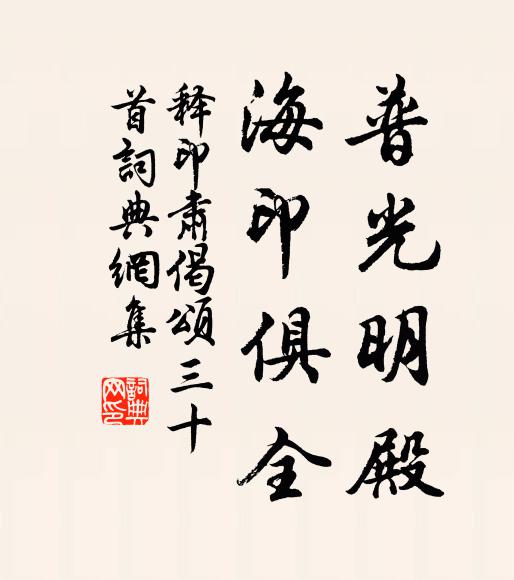 普光明殿
海印俱全
释印肃偈頌三十
首詞典網集
詞典
网印